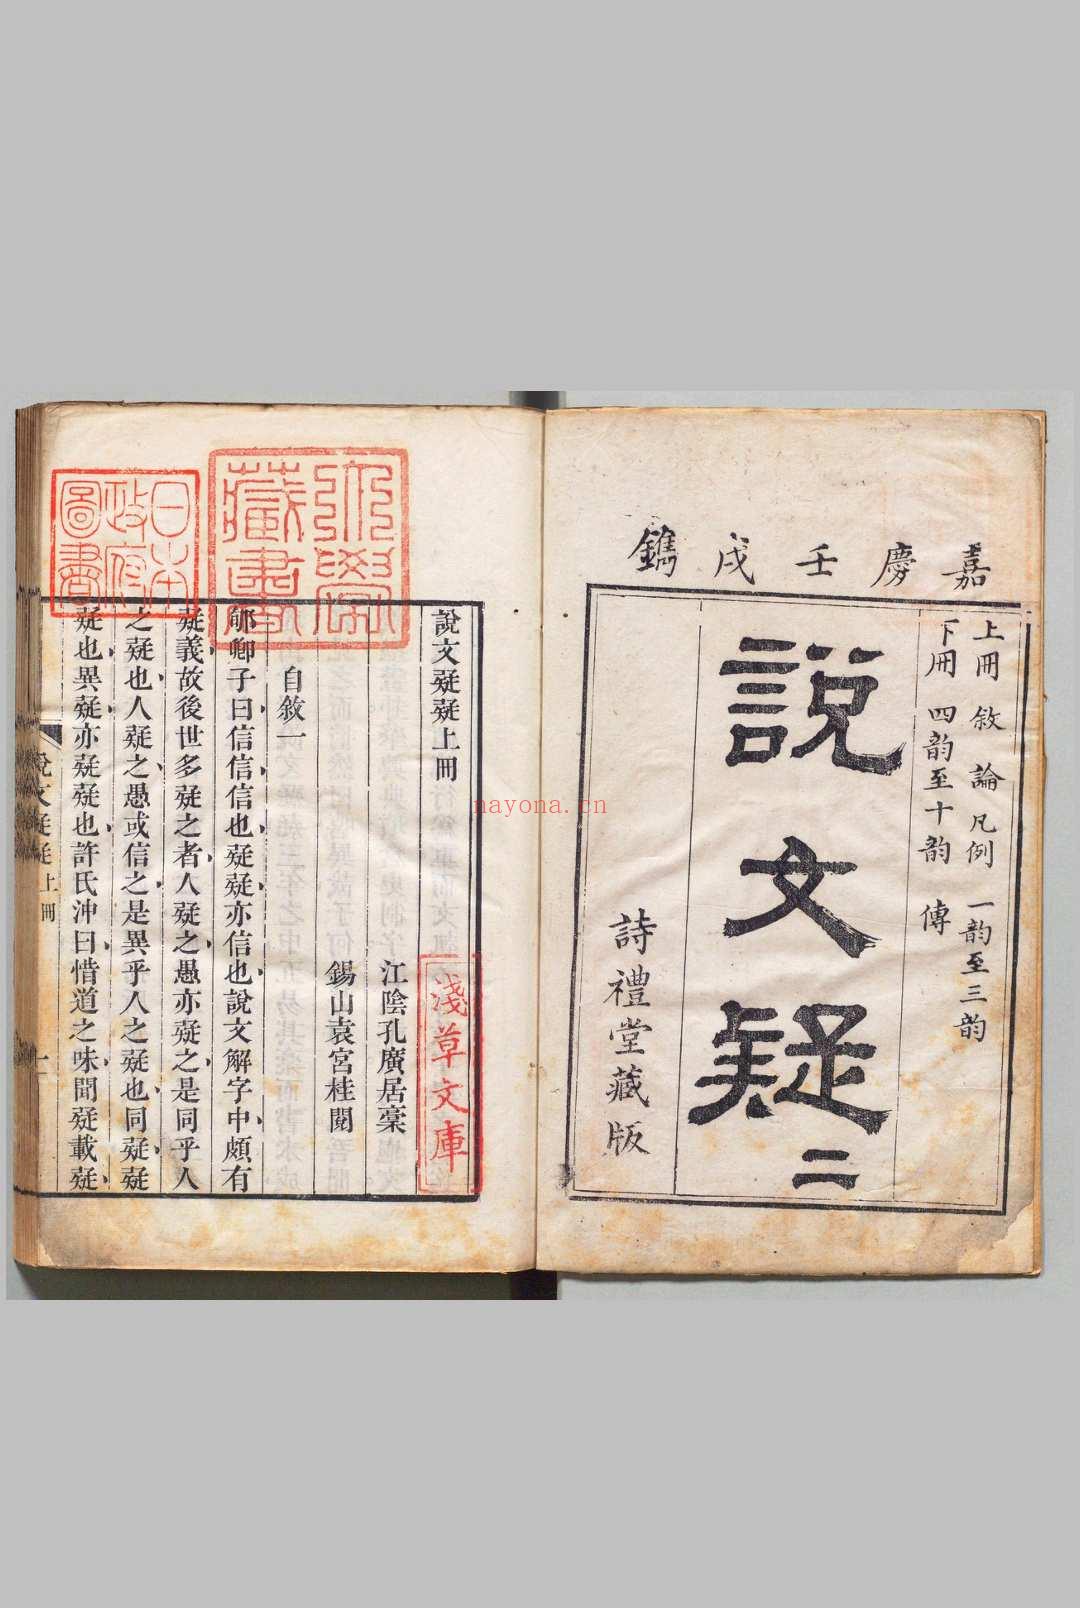 嘉慶壬戌鐫
上冊 敘 論 凡例 一韵至三韵
下冊 四韵至十韵 傳
說文疑二
詩禮堂藏版
說文疑疑上冊
江陰孔廣居稾
錫山袁宮桂閱
自敘一
郇卿子曰信信信也疑疑亦信也說文解字中頗有
疑義故後世多疑之者人疑之愚亦疑之是同乎人
之疑也人疑之愚或信之是異乎人之疑也同疑疑
疑也異疑亦疑疑也許氏沖曰惜道之味聞疑載疑
說文疑疑上冊
淺草文庫
日本政府圖書
藏書
nayona.cn